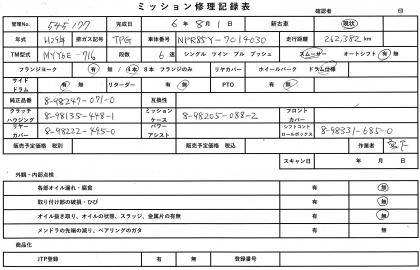 ミッション修理記録表
確認者 印
管理No. 545177 完成日 6 年 8 月 1 日 新古車 現状
年式 H29年 排ガス記号 TPG 車体番号 NPR85Y-7014030 走行距離 262,382 km
TM型式 MYY6E-716 段数 6 速 シングル ツイン プル プッシュ スムーサー オートシフト 有 無
フランジヨーク 有 無 / 4本 8本 フランジのみ リヤカバー ホイールパーク ドラム仕様
サイドドラム 有 無 リターダー 有 無 PTO 有 無
純正品番 8-98247-071-0 互換性
クラッチハウジング 8-98135-448-1 ミッションケース 8-98205-088-2 フロントカバー
リヤーカバー 8-98232-495-0 パワーアシスト シフトコントロールボックス 8-98331-685-0
販売予定価格 税別 販売予定価格 税込 作業者
スキャン日 年 月 日
外観・内部点検
各部オイル漏れ・腐食 有 無
取り付け部の破損・ひび 有 無
オイル抜き取り、オイルの状態、スラッジ、金属片の有無 有 無
メンドラの先端の減り、ベアリングのガタ 有 無
商品化
JTP登録 有 無 登録番号